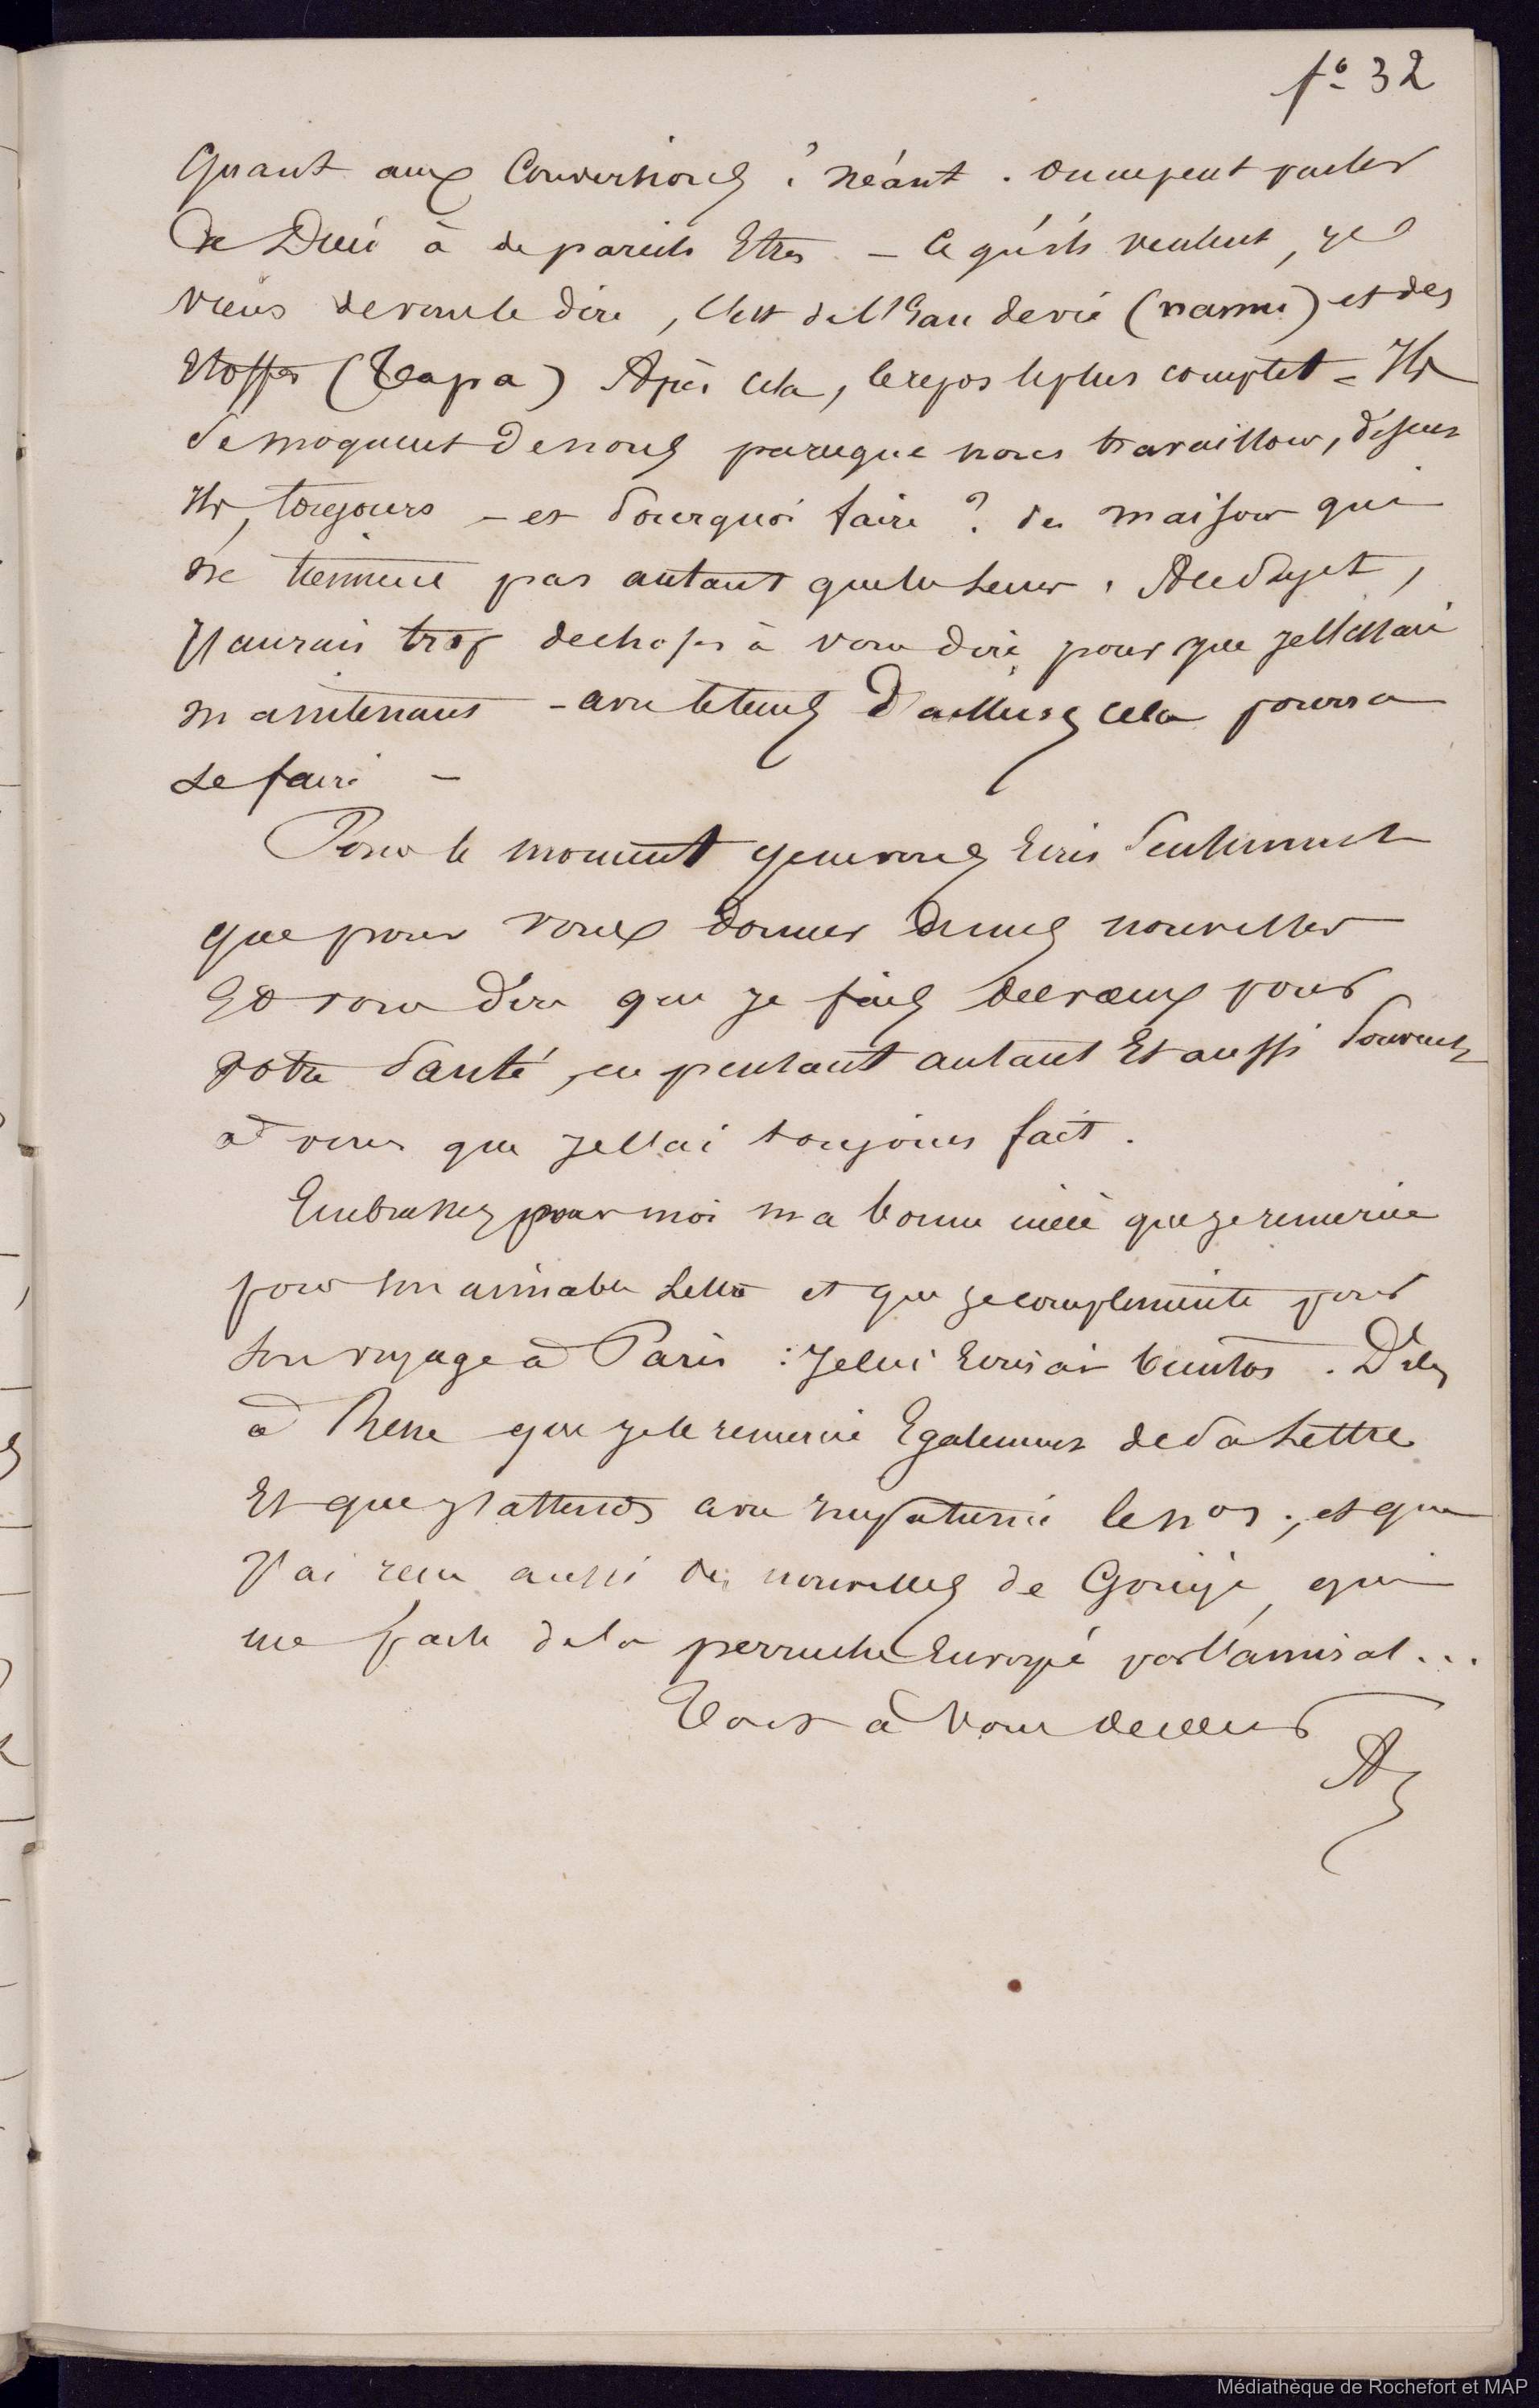 fo 32
Quant aux Conversions : néant. on ne peut parler
de Dieu à de pareils Etres – Ce qu'ils veulent, je
viens de vous le dire, C'est de l'Eau de vie (namu) et des
Etoffes (Tapa) Après cela, le repos le plus complet – Ils
se moquent de nous parceque nous travaillons, disent
Ils, toujours – et pourquoi faire ? des maisons qui
ne tiennent pas autant que les leurs. A ce Sujet,
J'aurais trop de choses à vous dire pour que je l'essaie
maintenant – avec le tems D'ailleurs cela pourra
se faire –
Pour le moment je ne vous Ecris Seulement
que pour vous donner de mes nouvelles
Et vous dire que je fais des vœux pour
votre Santé, en pensant autant Et aussi Souvent
à vous que je l'ai toujours fait.
Embrassez pour moi ma bonne nièce que je remercie
pour son aimable Lettre et que je complimente pour
son voyage à Paris : Je lui Ecrirai bientôt. Dites
à que je le remercie Egalement de Sa Lettre
Et que j'attends avec impatience les nos ; et que
J'ai reçu aussi des nouvelles de qui
me parle de la perruche Envoyée par l'amiral...
Tout à vous de cœur
A
Médiathèque de Rochefort et MAP